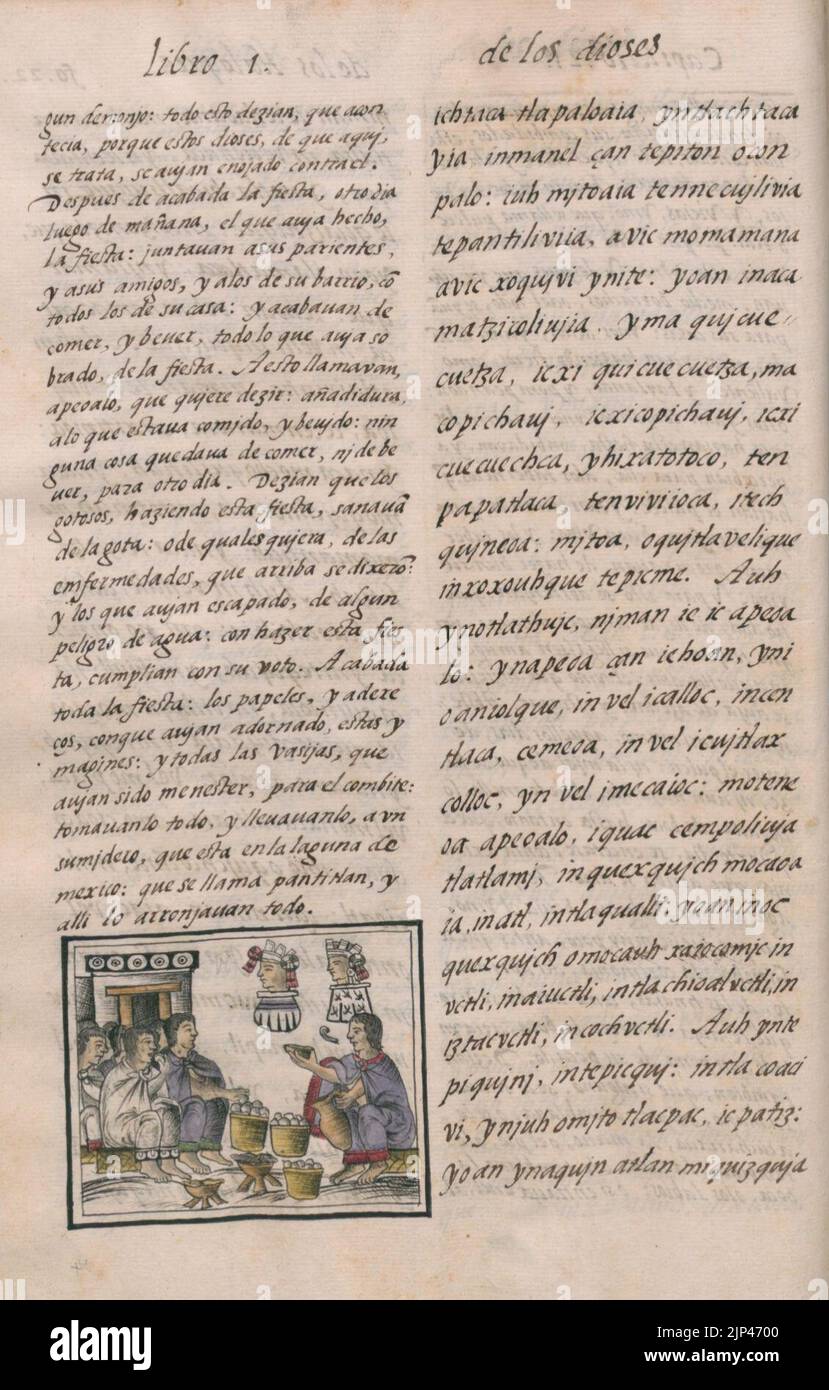 libro 1.
de los dioses
gun demonjo: todo esto dezian, que acon
tecia, porque estos dioses, de que aquj,
se trata, se aujan enojado contra el.
Despues de acabada la fiesta, otro dia
luego de mañana, el que auja hecho,
la fiesta: juntauan a sus parientes,
y a sus amigos, y a los de su barrio, cō
todos los de su casa: y acabauan de
comer, y beuer, todo lo que auja so
brado, de la fiesta. A esto llamavan,
apeoalo, que qujere dezir: añadidura,
a lo que estaua comjdo, y beujdo: nin
guna cosa quedaua de comer, nj de be
uer, para otro dia. Dezian que los
gotosos, haziendo esta fiesta, sanauā
de la gota: o de qualesqujera, de las
emfermedades, que arriba se dixerō:
y los que aujan escapado, de algun
peligro de agua: con hazer esta fies
ta, cumplian con su voto. Acabada
toda la fiesta: los papeles, y adere
ços, con que aujan adornado, estas y
magines: y todas las vasijas, que
aujan sido menester, para el combite:
tomauanlo todo, y lleuauanlo, a vn
sumjdero, que esta en la laguna de
mexico: que se llama pantitlan, y
alli lo arronjauan todo.
ichtaca tlapaloaia, yntlachtaca
yia inmanel çan tepiton ocon
palo: iuh mjtoaia tennecujlivia
tepantiliviia, avic momamana
avic xoqujvi ynite: yoan inaca
matzicoliujia. yma qujcue
cuetza, icxi quicuecuetza, ma
copichauj, icxicopichauj, icxi
cuecuechca, yhixatotoco, ten
papatlaca, tenviviioca, itech
qujneoa: mjtoa, oqujtlavelique
inxoxouhque tepicme. Auh
ynotlathujc, njman ie ic apeoa
lo: ynapeoa çan iehoan, yni
oaniolque, in vel icalloc, incen
tlaca, cemeoa, in vel icujtlax
colloc, yn vel imecaioc: motene
oa apeoalo, iquac cempoliuja
tlatlamj, in quexqujch mocaoa
ia, in atl, in tlaqualli: yoan in oc
quexqujch omocauh xaiocomjc in
vctli, in aiuctli, in tlachioalvctli, in
iztacvctli, in cochvctli. Auh ynte
piqujnj, in tepicquj: intla coaci
vi, ynjuh omjto tlacpac, ic patiz:
yoan ynaqujn atlan miquizquja
alamy
Image ID: 2JP4700
www.alamy.com